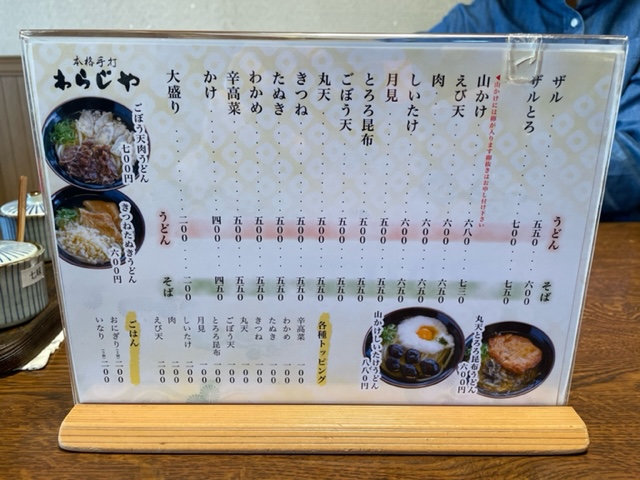 本格手打
わらじや
ごぼう天肉うどん 七〇〇円
きつねたぬきうどん 六〇〇円
うどん そば
ザル 五五〇 六〇〇
ザルとろ 七〇〇 七五〇
山かけには卵が入ります卵抜きはお申し付け下さい
山かけ 六八〇 七三〇
えび天 六〇〇 六五〇
肉 六〇〇 六五〇
しいたけ 六〇〇 六五〇
月見 五〇〇 五五〇
とろろ昆布 五〇〇 五五〇
ごぼう天 五〇〇 五五〇
丸天 五〇〇 五五〇
きつね 五〇〇 五五〇
たぬき 五〇〇 五五〇
わかめ 五〇〇 五五〇
辛高菜 五〇〇 五五〇
かけ 四〇〇 四五〇
大盛り 二〇〇 二〇〇
うどん そば
丸天とろろ昆布うどん 六〇〇円
山かけしいたけうどん 八八〇円
各種トッピング
辛高菜 一〇〇
わかめ 一〇〇
たぬき 一〇〇
きつね 一〇〇
丸天 一〇〇
ごぼう天 一〇〇
とろろ昆布 一〇〇
月見 一〇〇
しいたけ 二〇〇
肉 二〇〇
えび天 二〇〇
ごはん
おにぎり 二〇〇
いなり 二〇〇
七味